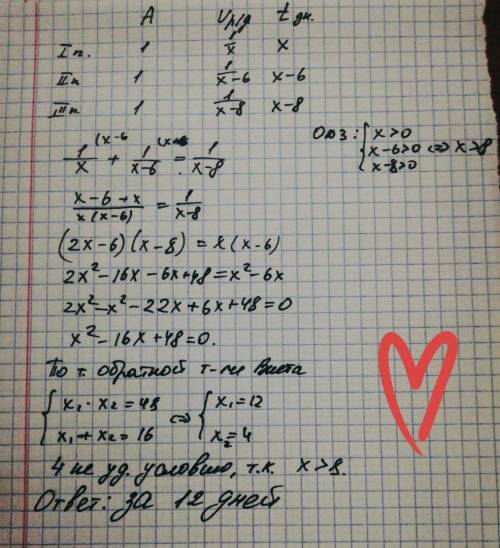 A Vр/д t дн.
I п. 1 1/x x
II п 1 1/(x-6) x-6
III п. 1 1/(x-8) x-8
1/x + 1/(x-6) = 1/(x-8)
ОДЗ: { x>0
x-6>0 <=> x>8
x-8>0
(x-6+x)/(x(x-6)) = 1/(x-8)
(2x-6)(x-8) = x(x-6)
2x²-16x-6x+48=x²-6x
2x²-x²-22x+6x+48=0
x²-16x+48=0.
По т. обратной т-ме Виета
{ x₁·x₂=48 <=> { x₁=12
x₁+x₂=16 x₂=4
4 не уд. условию, т.к. x>8.
Ответ: за 12 дней